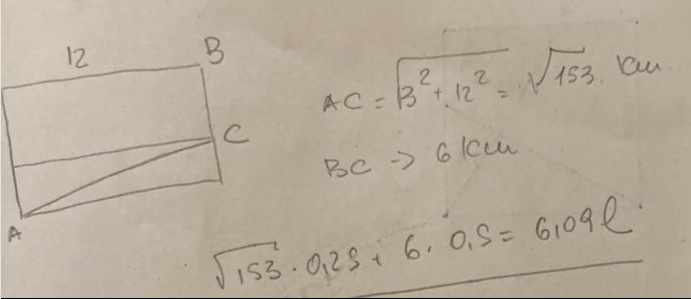 12
B
C
A
AC = √3² + 12² = √153 km
BC → 6 km
√153 · 0,25 + 6 · 0,5 = 6,09 l